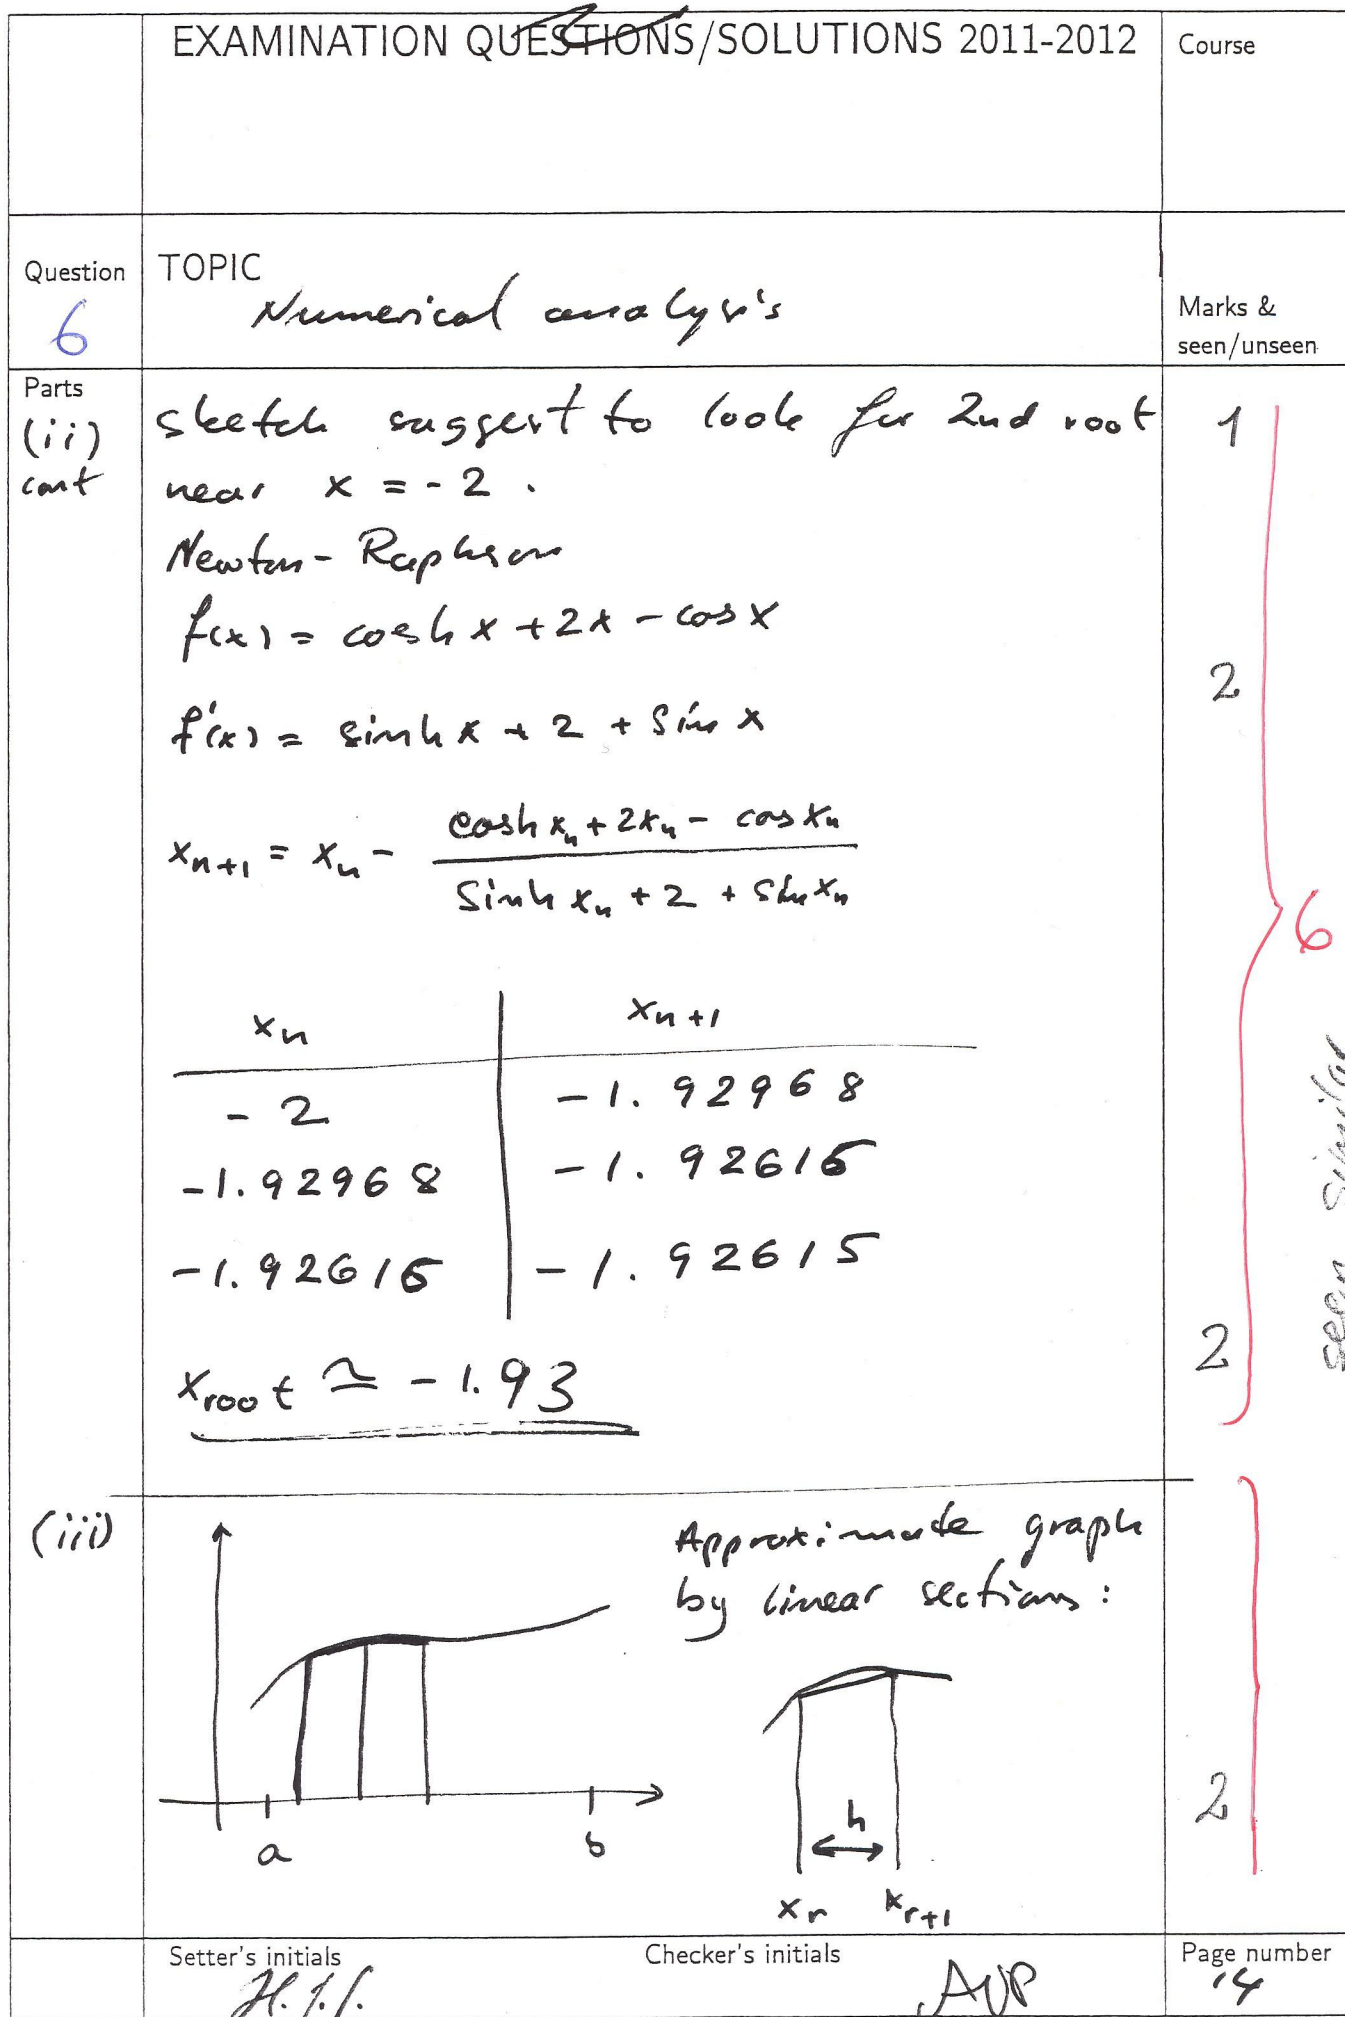 EXAMINATION QUESTIONS/SOLUTIONS 2011-2012
Course
Question
6
TOPIC
Numerical analysis
Marks &
seen/unseen
Parts
(ii)
cont
sketch suggest to look for 2nd root
1
near x = -2 .
Newton - Raphson
f(x) = cosh x + 2x - cos x
2
f'(x) = sinh x + 2 + sin x
x_{n+1} = x_n - \frac{cosh x_n + 2x_n - cos x_n}{sinh x_n + 2 + sin x_n}
6
seen similar
x_n x_{n+1}
-2 -1.92968
-1.92968 -1.92615
-1.92615 -1.92615
2
x_{root} ≃ -1.93
(iii)
Approximate graph
by linear sections :
a b
h
x_r x_{r+1}
2
Setter's initials
H.J.J.
Checker's initials
AVP
Page number
14